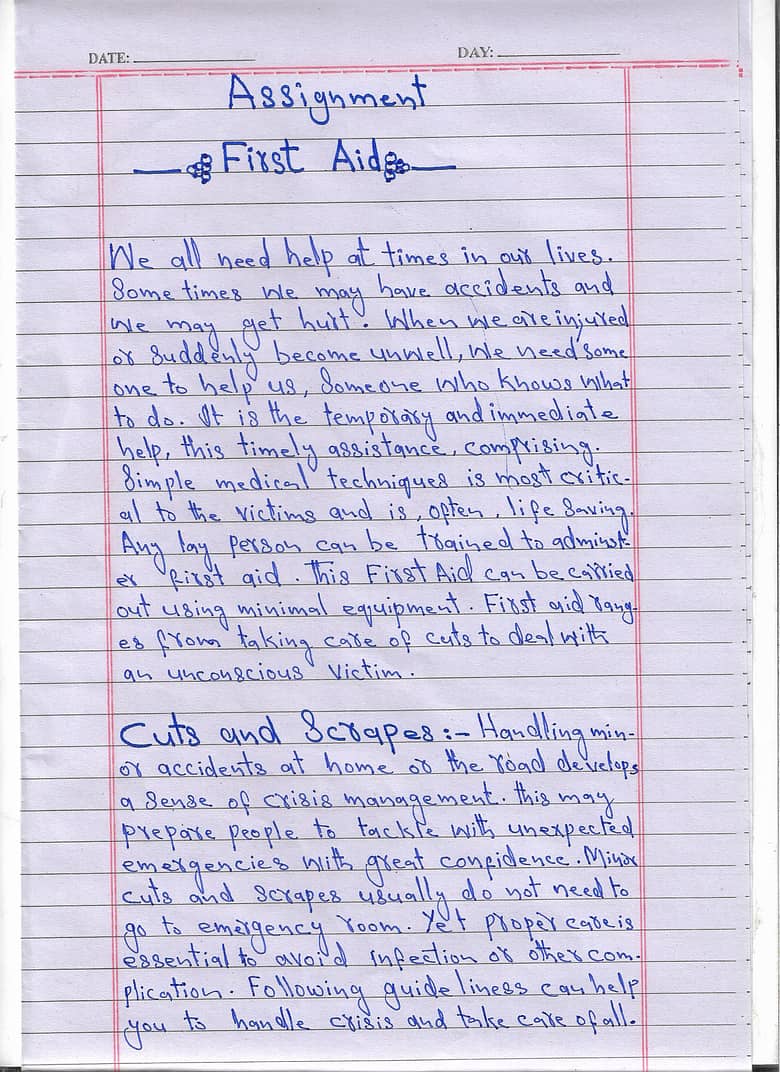 DATE: DAY:
Assignment
First Aid
We all need help at times in our lives.
Some times we may have accidents and
we may get hurt. When we are injured
or suddenly become unwell, we need some
one to help us, Someone who knows what
to do. It is the temporary and immediate
help, this timely assistance, comprising.
Simple medical techniques is most critic-
al to the victims and is, often, life saving.
Any lay person can be trained to administ-
er first aid. This First Aid can be carried
out using minimal equipment. First aid rang-
es from taking care of cuts to deal with
an unconscious victim.
Cuts and Scrapes :- Handling min-
or accidents at home or the road develops
a sense of crisis management. this may
prepare people to tackle with unexpected
emergencies with great confidence. Minor
cuts and scrapes usually do not need to
go to emergency room. Yet proper care is
essential to avoid infection or other com-
plication. Following guide liness can help
you to handle crisis and take care of all.